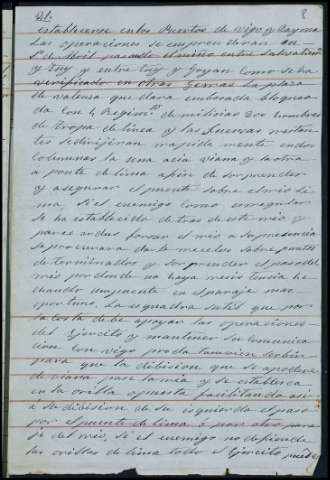 21.
8
establecerse en los Puertos de Vigo y Bayona
Las operaciones se emprenderan en
1.º de Abril pasando el miño entre Salvatierra
y Tuy y entre Tuy y Goyan como se ha
verificado en otras Gerras La plaza
de Valensa que dara embocada bloquea
da con 4 Regim.tos de milicias 200 hombres
de tropa de linea y las fuersas restan
tes se dirijiran rapida mente en dos
columnas la una acia viana y la otra
a ponte de lima afin de sorprender
y asegurar el puente sobre el rio de
ma, Si el enemigo como es regular
se ha establecido de tras de este rio y
parece ardua forsar el rio a su presencia
se procurara darle recelos sobre puntos
determinados y sorprender el paso del
rio por donde no haya resistencia he
chando un puente en el paraje mas
oportuno, La esquadra sutil que por
la costa debe apoyar las operaciones
del Ejercito y mantener la comunica
cion con vigo podra tambien servir
para que la dibision que se apodere
de viana pase la ria y se establesca
en la orilla opuesta facilitando asi
a la dibision de su izquierda el paso
por el puente de lima ó por otro para
je del rio, Si el enemigo no defiende
las orillas de lima todo el Ejercito puede